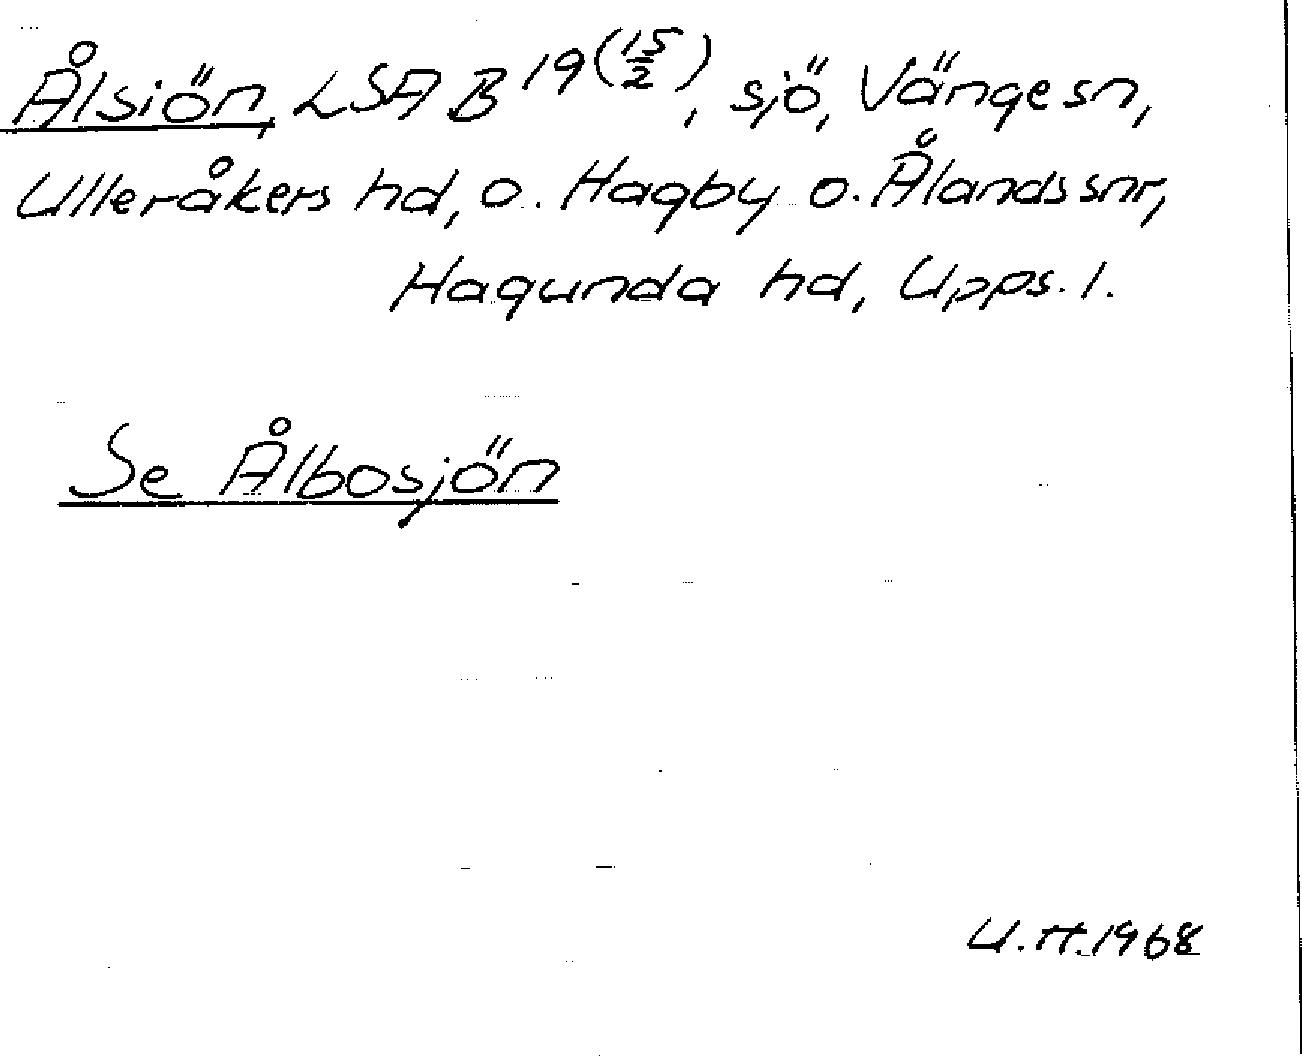 Ålsiön, LSA B 19 (15/2), sjö, Vänge sn,
Ulleråkers hd, o. Hagby o. Ålands snr,
Hagunda hd, Upps. l.
Se Ålbosjön
U.H.1968